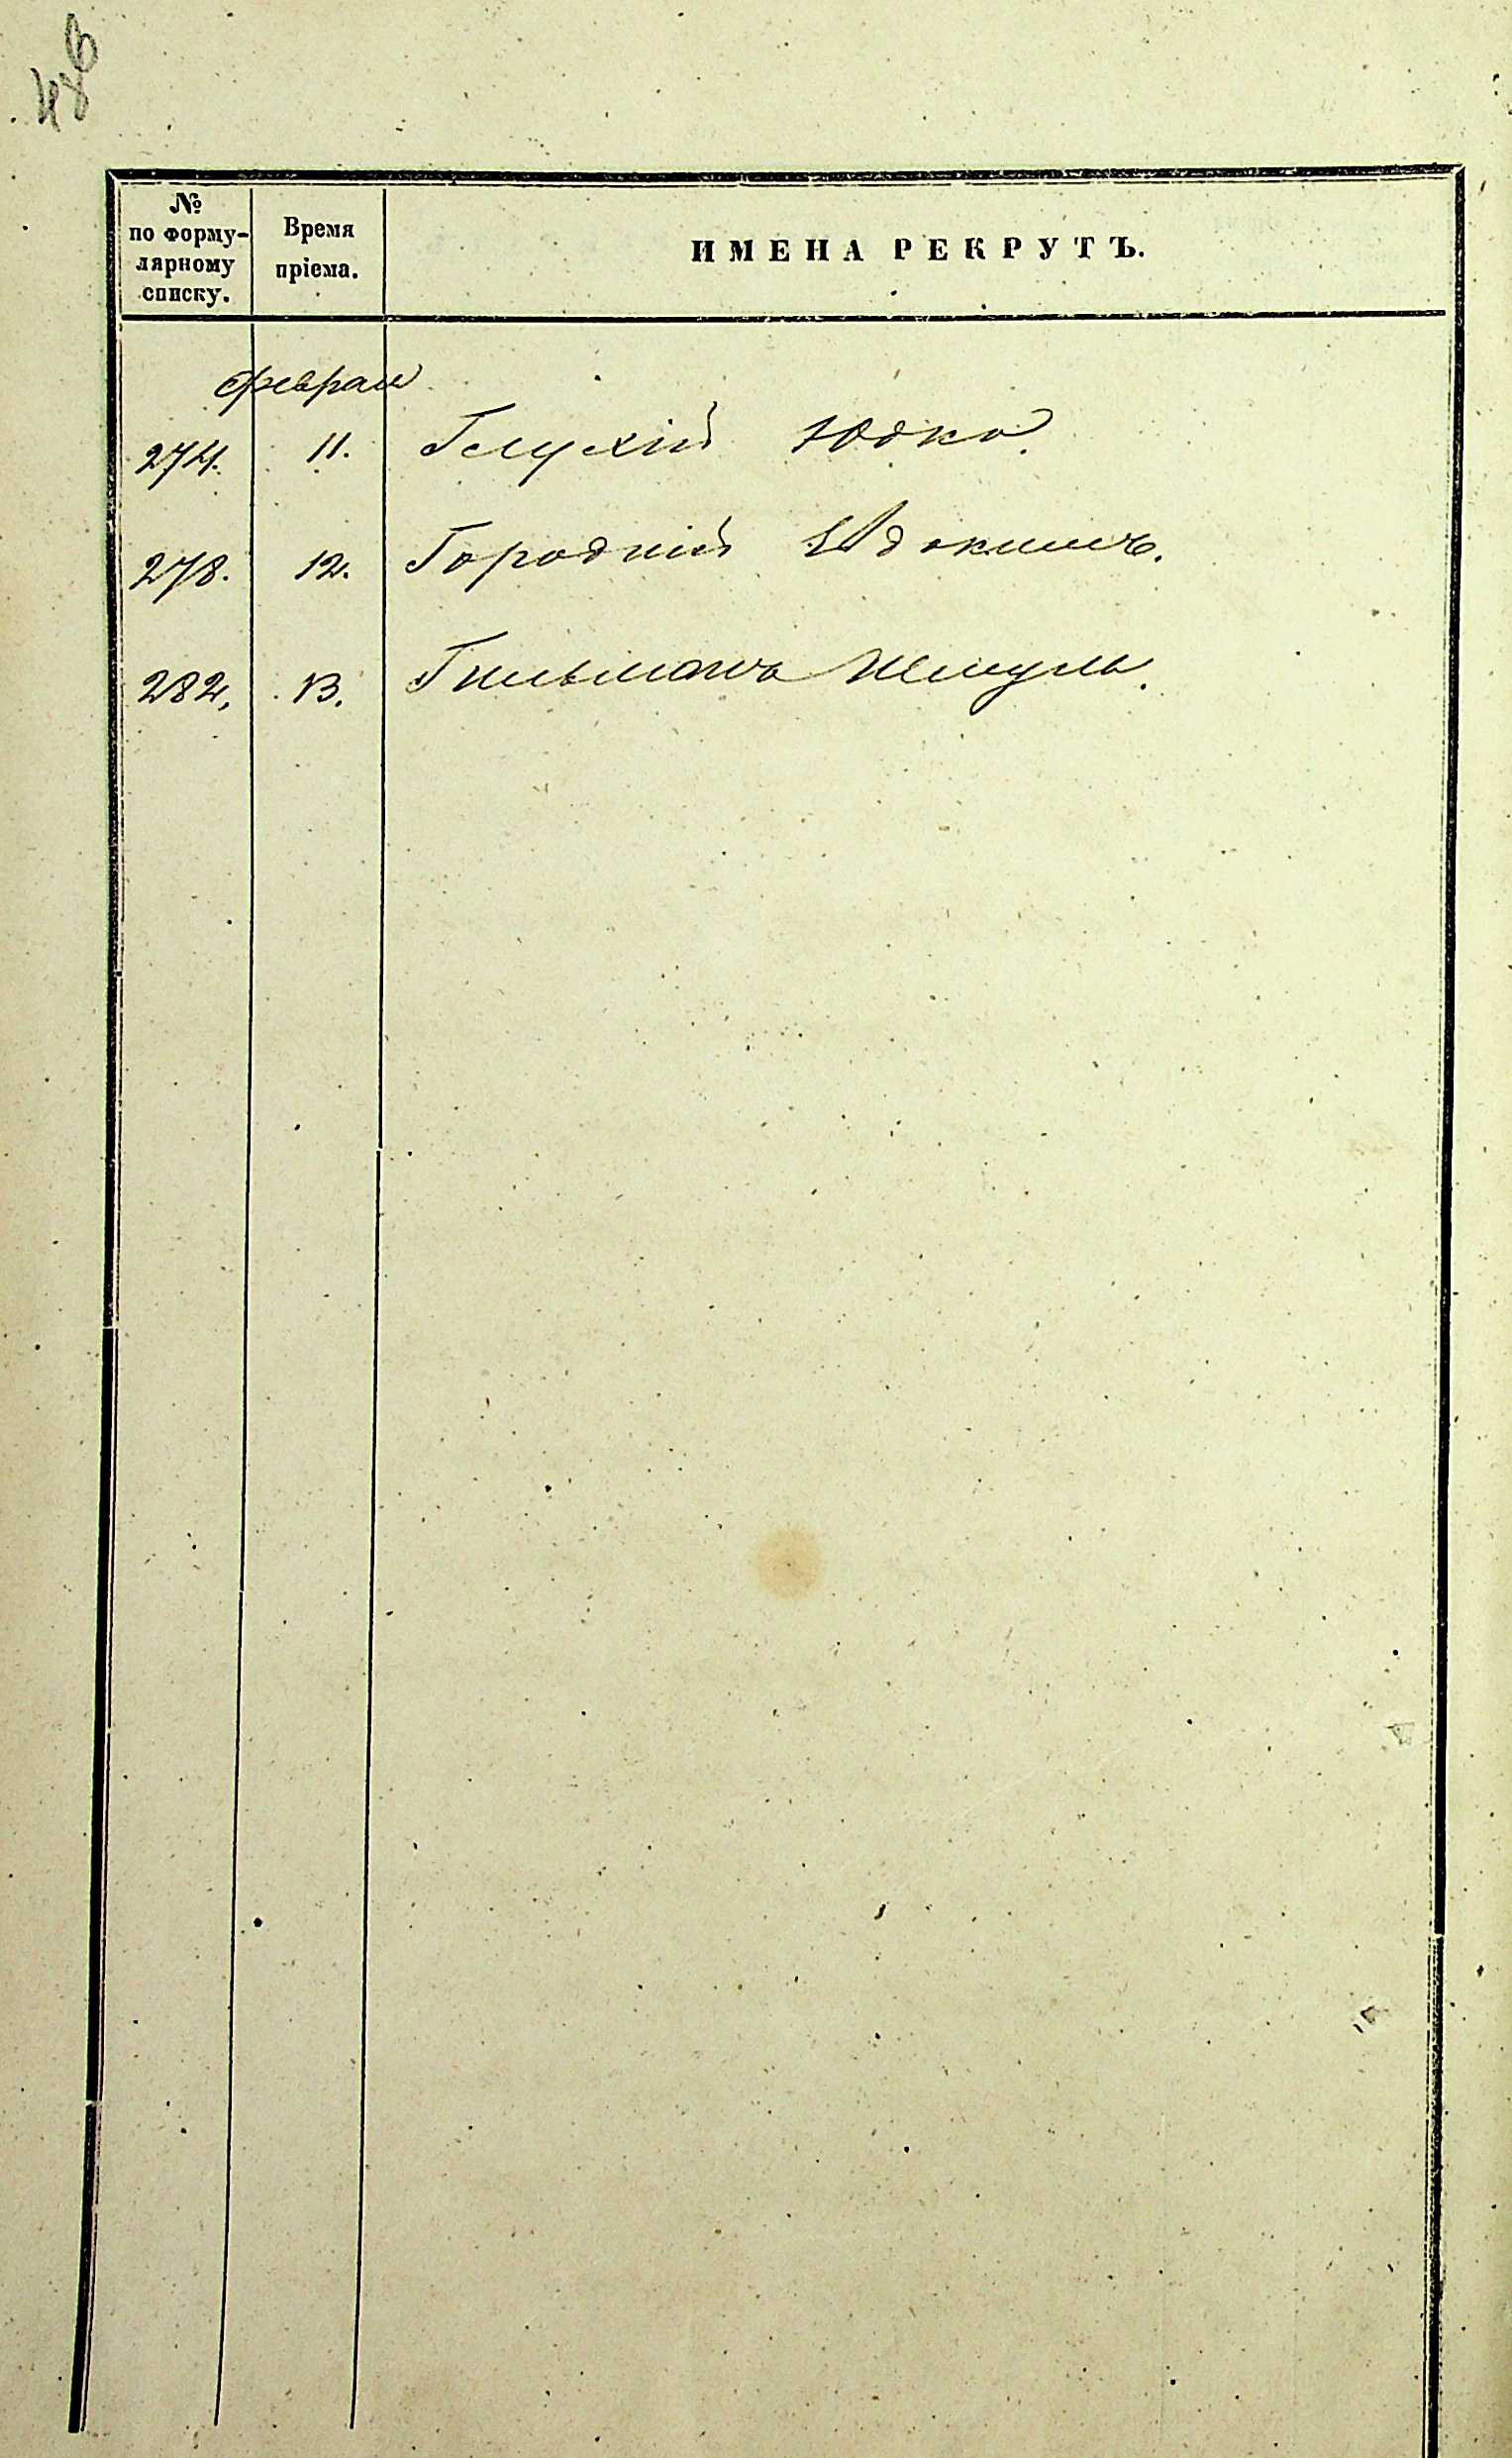 486
№ по формулярному списку. Время пріема. ИМЕНА РЕКРУТЪ.
февраля
274. 11. Глухій Юдко.
278. 12. Городній Евдокимъ.
282. 13. Гильманъ Шмуль.